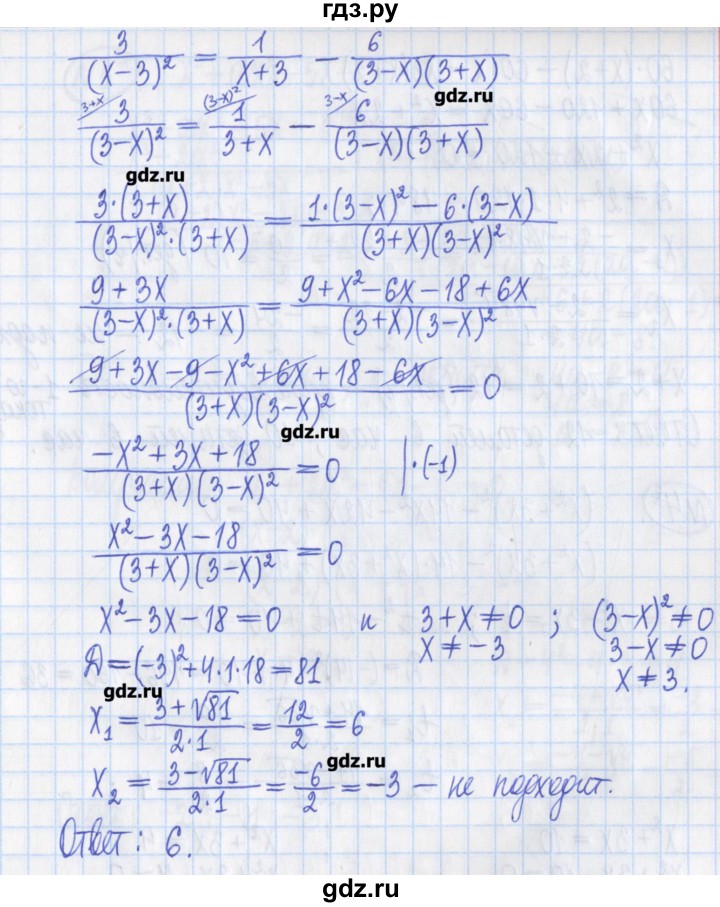 гдз.ру
3/(x-3)² = 1/(x+3) - 6/((3-x)(3+x))
gdz.ru
3+x (3-x)² 3-x
3/(3-x)² = 1/(3+x) - 6/((3-x)(3+x))
gdz.ru
3·(3+x)/((3-x)²·(3+x)) = (1·(3-x)² - 6·(3-x))/((3+x)(3-x)²)
(9+3x)/((3-x)²·(3+x)) = (9+x²-6x-18+6x)/((3+x)(3-x)²)
(9+3x-9-x²+6x+18-6x)/((3+x)(3-x)²) = 0
gdz.ru
(-x²+3x+18)/((3+x)(3-x)²) = 0 |·(-1)
(x²-3x-18)/((3+x)(3-x)²) = 0
x²-3x-18=0 и 3+x≠0 ; (3-x)²≠0
x≠-3 3-x≠0
Д=(-3)²+4·1·18=81 x≠3.
gdz.ru
x₁ = (3+√81)/(2·1) = 12/2 = 6
gdz.ru
x₂ = (3-√81)/(2·1) = -6/2 = -3 - не подходит.
Ответ: 6.
gdz.ru